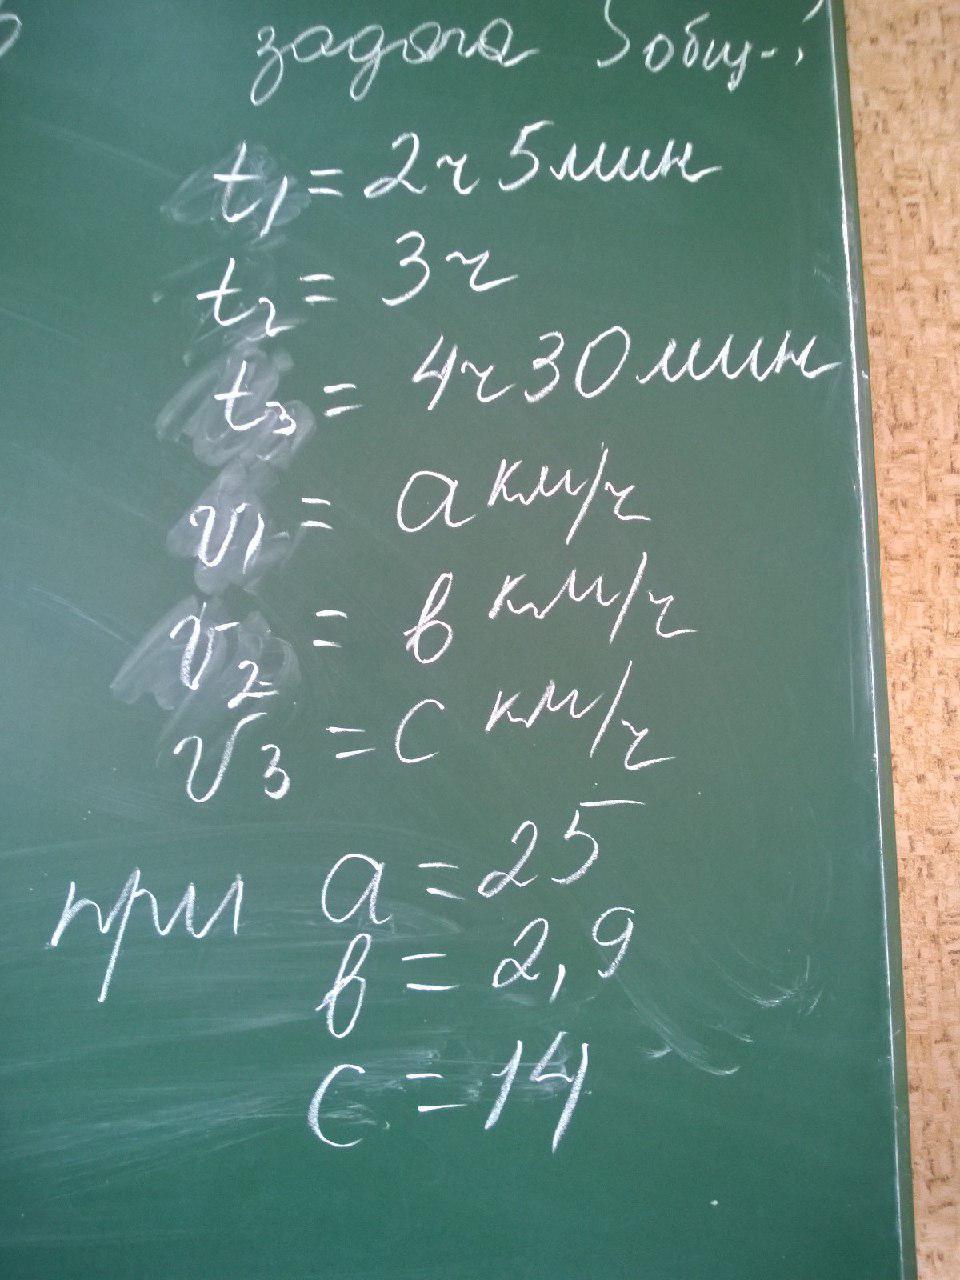 задача Sобщ-?
t₁ = 2ч 5мин
t₂ = 3ч
t₃ = 4ч 30мин
v₁ = a км/ч
v₂ = в км/ч
v₃ = c км/ч
при a = 25
в = 2,9
c = 14